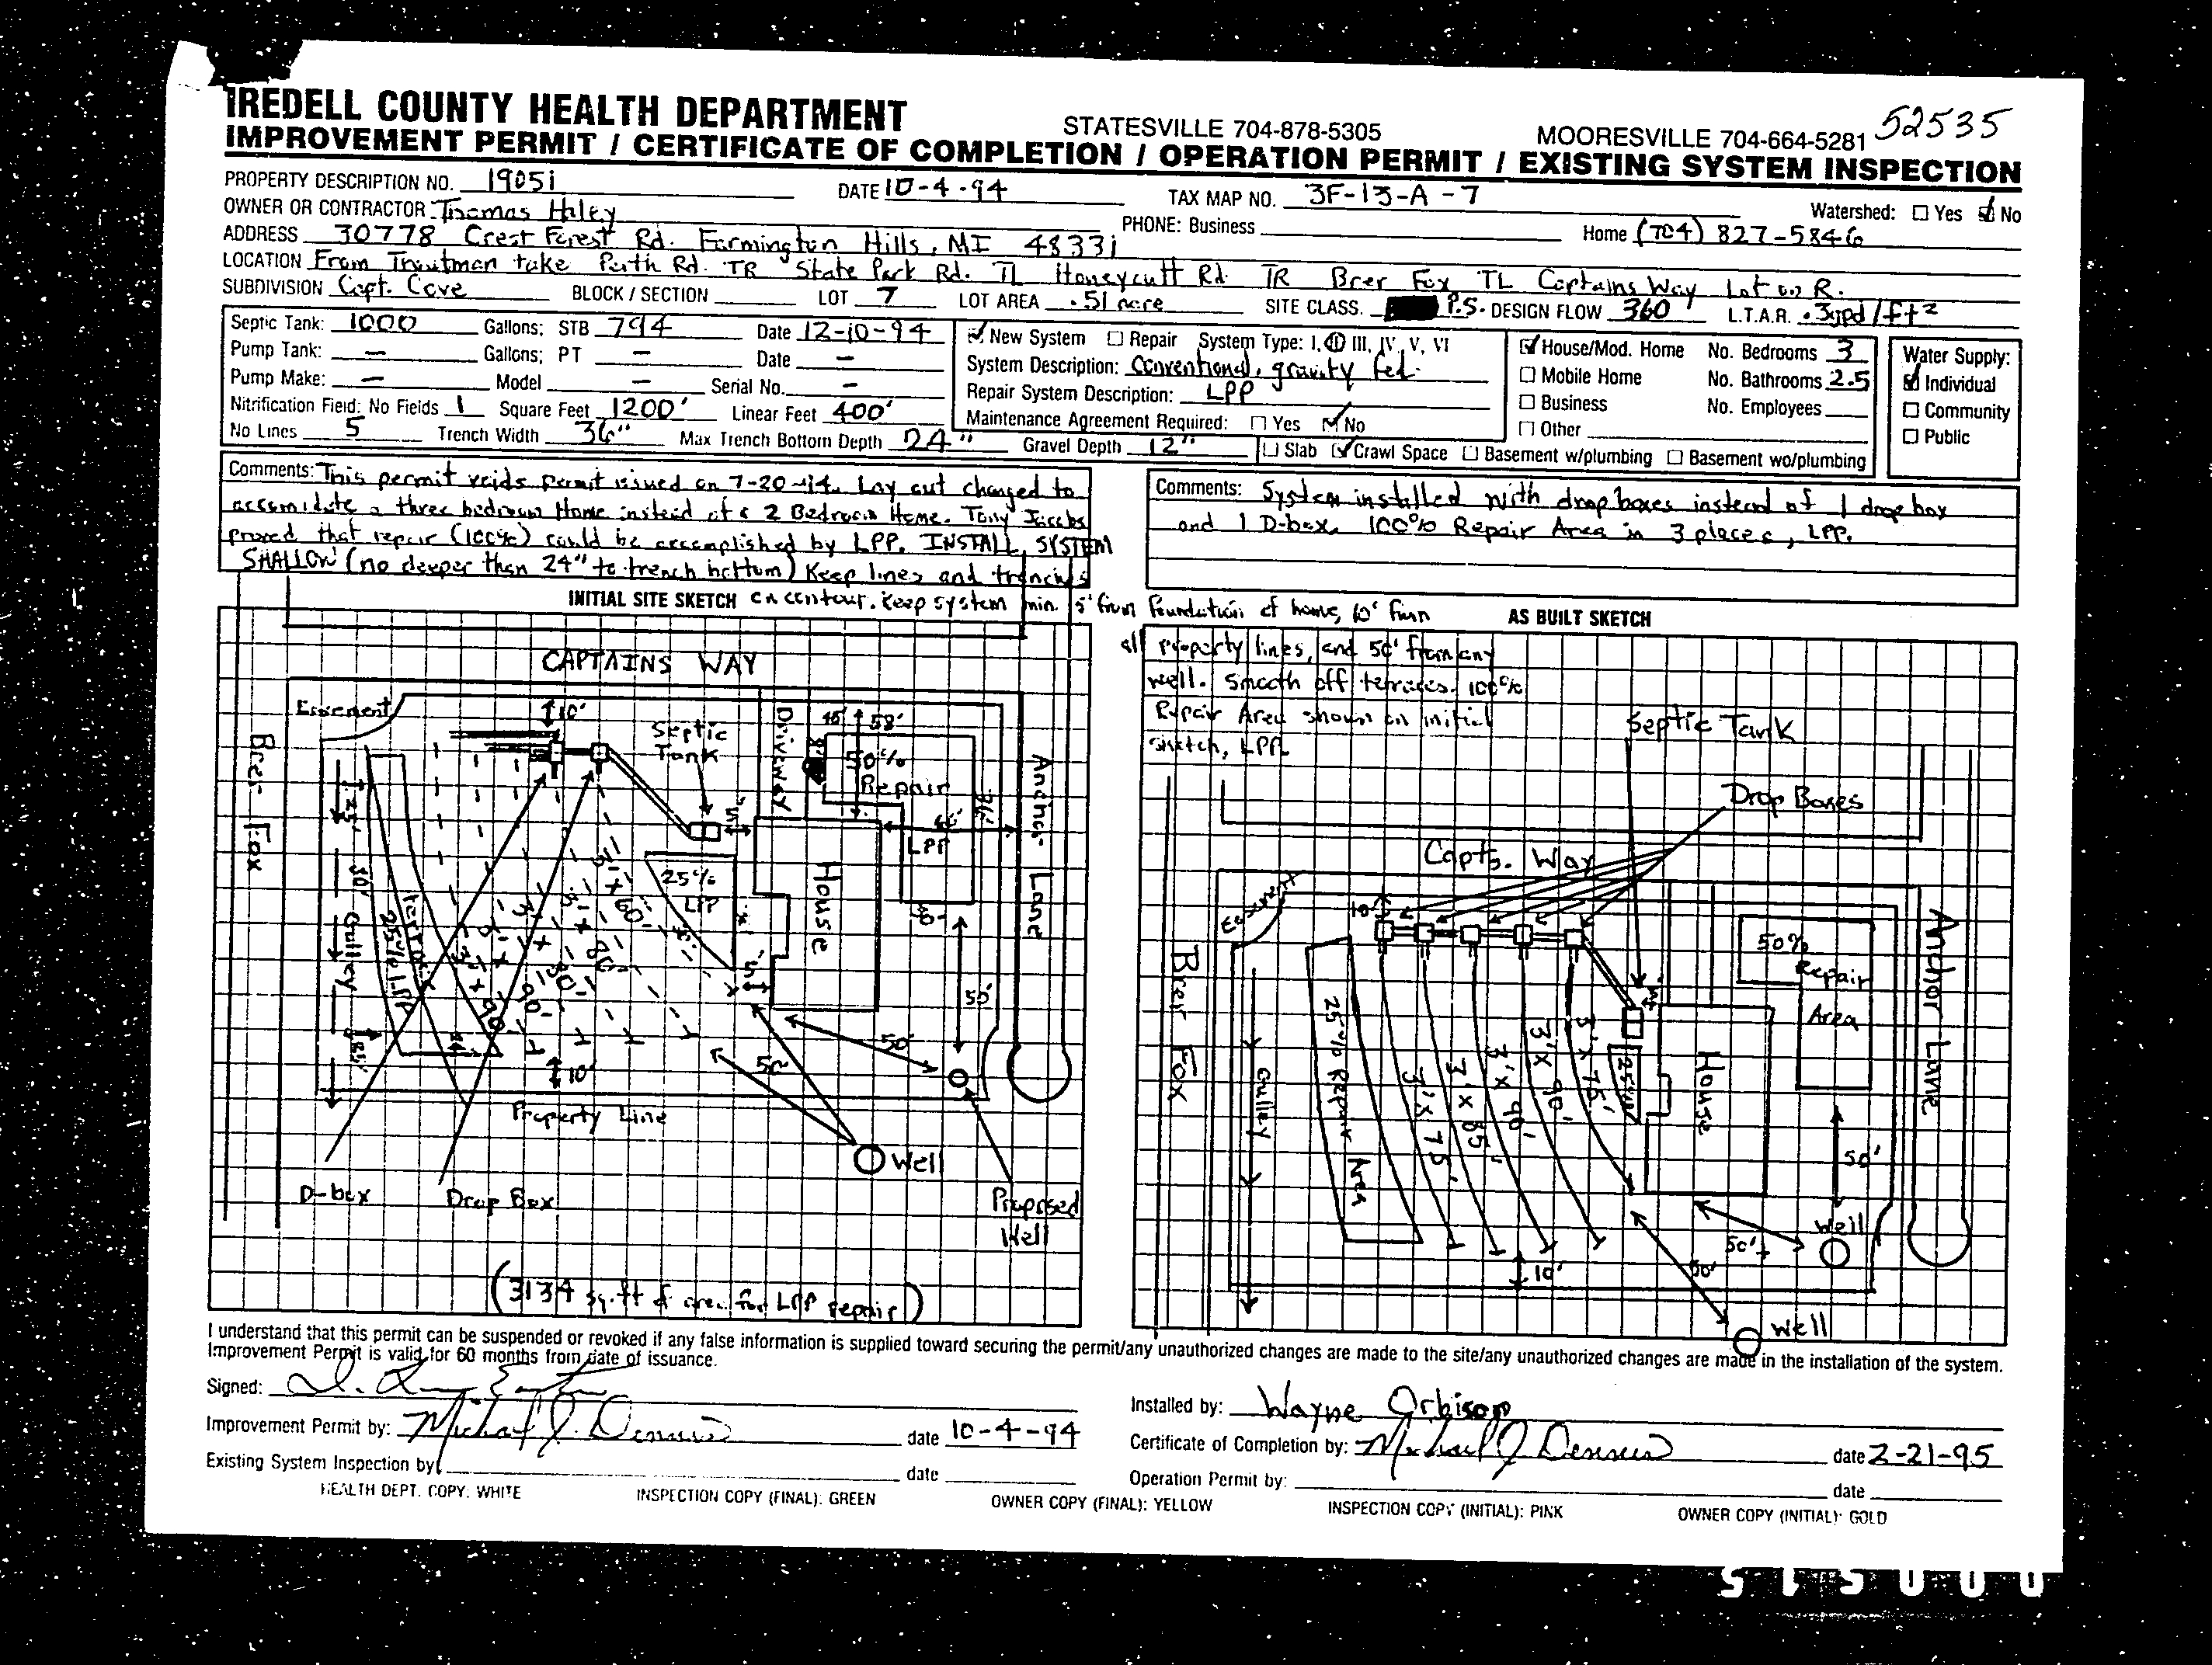 IREDELL COUNTY HEALTH DEPARTMENT
STATESVILLE 704-878-5305
MOORESVILLE 704-664-5281
52535
IMPROVEMENT PERMIT / CERTIFICATE OF COMPLETION / OPERATION PERMIT / EXISTING SYSTEM INSPECTION
PROPERTY DESCRIPTION NO. 19051 DATE 10-4-94 TAX MAP NO. 3F-13-A-7 Watershed: Yes No
OWNER OR CONTRACTOR Thomas Haley PHONE: Business Home (704) 827-5846
ADDRESS 30778 Crest Forest Rd. Farmington Hills, MI 48331
LOCATION From Troutman take Perth Rd. TR State Park Rd. TL Honeycutt Rd. TR Brer Fox TL Captains Way Lot on R.
SUBDIVISION Capt. Cove BLOCK / SECTION LOT 7 LOT AREA .51 acre SITE CLASS. P.S. DESIGN FLOW 360 L.T.A.R. .3gpd/ft²
Septic Tank: 1000 Gallons; STB 794 Date 12-10-94
Pump Tank: — Gallons; PT — Date —
Pump Make: — Model — Serial No. —
Nitrification Field: No Fields 1 Square Feet 1200' Linear Feet 400'
No Lines 5 Trench Width 36" Max Trench Bottom Depth 24" Gravel Depth 12"
New System Repair System Type: I, II, III, IV, V, VI
System Description: Conventional, gravity fed.
Repair System Description: LPP
Maintenance Agreement Required: Yes No
Slab Crawl Space Basement w/plumbing Basement wo/plumbing
House/Mod. Home No. Bedrooms 3
Mobile Home No. Bathrooms 2.5
Business No. Employees
Other
Water Supply:
Individual
Community
Public
Comments: This permit voids permit issued on 7-20-94. Lay out changed to
accomidate a three bedroom Home instead of a 2 Bedroom Home. Tony Jacobs
proved that repair (100%) could be accomplished by LPP. INSTALL SYSTEM
SHALLOW (no deeper than 24" to trench bottom) Keep lines and trenches
INITIAL SITE SKETCH on contour. Keep system min. 5' from foundation of home, 10' from
all property lines, and 50' from any
well. Smooth off terraces. 100%
Repair Area shown on initial
sketch, LPP.
Comments: System installed with drop boxes instead of 1 drop box
and 1 D-box. 100% Repair Area in 3 places, LPP.
AS BUILT SKETCH
CAPTAINS WAY
Easement
10'
Septic
Tank
Driveway
58'
50%
Repair
36'
LPP
Brer Fox
Anchor Lane
25'
30'
Gulley
terrace
25% LPP
25%
LPP
5'
House
50'
50'
50'
10'
Property Line
Well
D-box
Drop Box
Proposed
Well
(3134 sq. ft of area for LPP repair)
Septic Tank
Drop Boxes
Capts. Way
Easement
10'
50%
Repair
Area
Brer Fox
Anchor Lane
Gulley
25% Repair Area
3' x 75'
3' x 85'
3' x 90'
3' x 90'
3' x 75'
25%
5'
House
50'
Well
50'+
50'
10'
Well
I understand that this permit can be suspended or revoked if any false information is supplied toward securing the permit/any unauthorized changes are made to the site/any unauthorized changes are made in the installation of the system.
Improvement Permit is valid for 60 months from date of issuance.
Signed:
Installed by: Wayne Orbison
Improvement Permit by: Michael J. Dennis date 10-4-94
Certificate of Completion by: Michael J Dennis date 2-21-95
Existing System Inspection by: date
Operation Permit by: date
HEALTH DEPT. COPY: WHITE INSPECTION COPY (FINAL): GREEN OWNER COPY (FINAL): YELLOW INSPECTION COPY (INITIAL): PINK OWNER COPY (INITIAL): GOLD